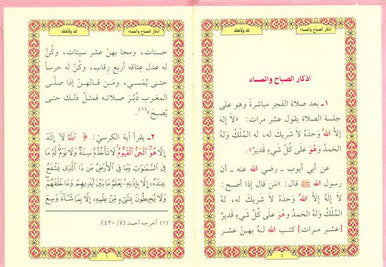 أذكار الصباح والمساء لك ولأهلك
أذكار الصباح والمساء
١- بعد صلاة الفجر مباشرة وهو على
جلسة الصلاة يقول عشر مرات: «لا إِلَهَ
إِلاَّ اللهُ وَحْدَهُ لا شَرِيكَ لَه، لَهُ المُلْكُ وَلَهُ
الحَمْدُ وَهُوَ عَلَى كُلِّ شَيءٍ قَدِيرٌ».
عن أبي أيوب - رضي الله عنه - أن
رسول الله ﷺ قال: «مَن قال إذا أصبح:
لا إِلَهَ إلاَّ اللهُ وحدَهُ لا شريكَ له، لَهُ
المُلْكُ ولَهُ الحَمْدُ وهُوَ على كُلِّ شَيءٍ قدير
[عشر مرات] كُتب الله لهُ بهنَّ عشر
٥
لك ولأهلك أذكار الصباح والمساء
حسنات، ومحا بهنَّ عشر سيئات، وكُنَّ
له عدل عتاقه أربع رقاب، وكُنَّ له حرساً
حتى يُمسي، ومَن قالهنَّ إذا صلَّى
المغرب دُبُرَ صلاته فمثلُ ذلك حتى
يُصبح»(١).
٢- يقرأ آية الكرسيّ: ﴿ اللَّهُ لَا إِلَٰهَ
إِلَّا هُوَ الْحَيُّ الْقَيُّومُ لَا تَأْخُذُهُ سِنَةٌ وَلَا نَوْمٌ لَّهُ مَا
فِي السَّمَٰوَٰتِ وَمَا فِي الْأَرْضِ مَن ذَا الَّذِي يَشْفَعُ
عِندَهُ إِلَّا بِإِذْنِهِ يَعْلَمُ مَا بَيْنَ أَيْدِيهِمْ وَمَا خَلْفَهُمْ
وَلَا يُحِيطُونَ بِشَيْءٍ مِّنْ عِلْمِهِ إِلَّا بِمَا شَاءَ وَسِعَ
(١) أخرجه أحمد (٥/ ٤٢٠)
٦